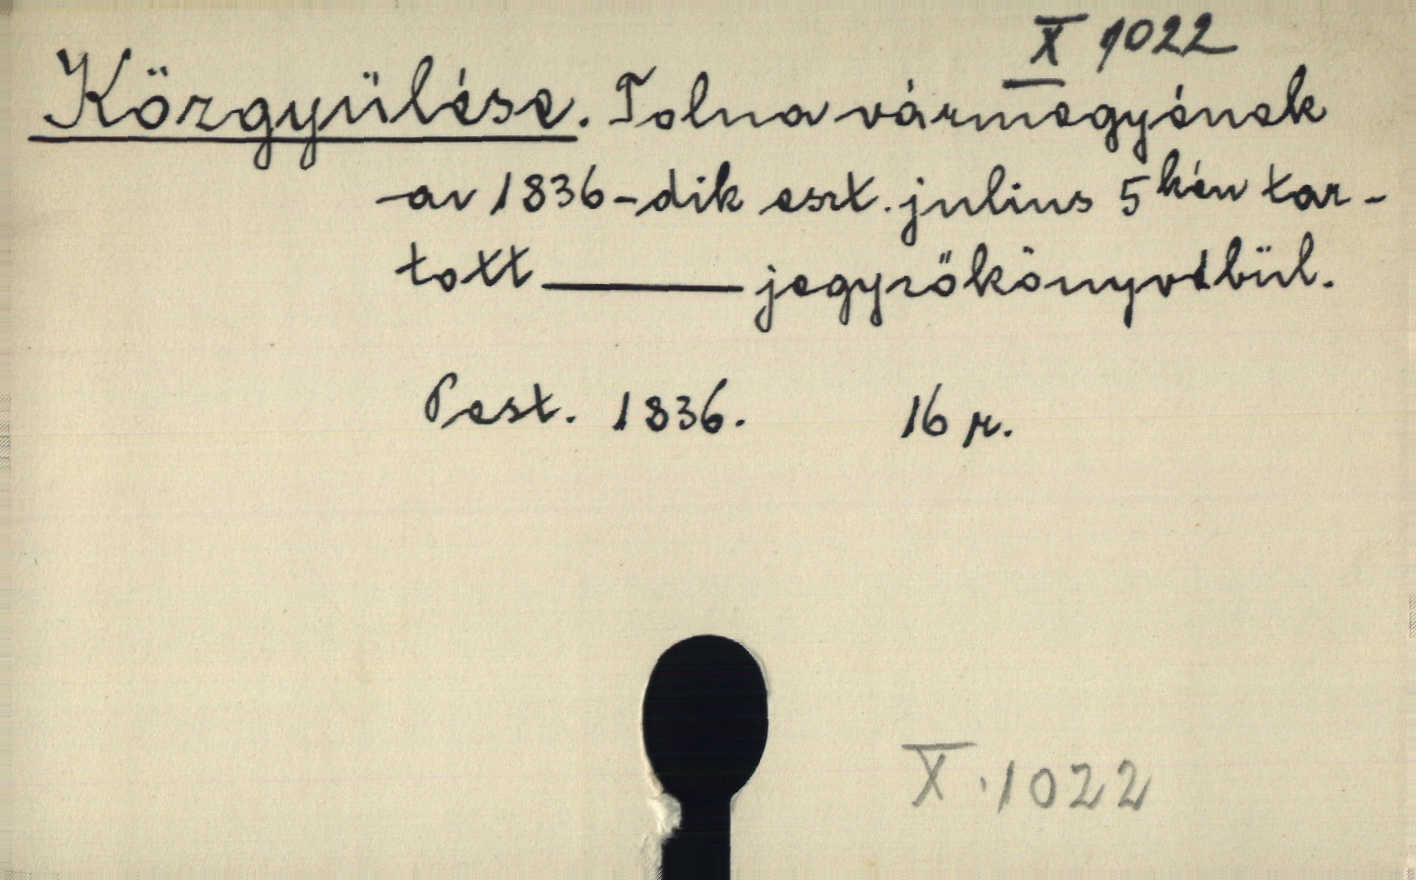 X 1022
Közgyülése. Tolna vármegyének
az 1836-dik eszt. julius 5kén tar-
tott ——— jegyzőkönyvébül.
Pest. 1836. 16 r.
X. 1022